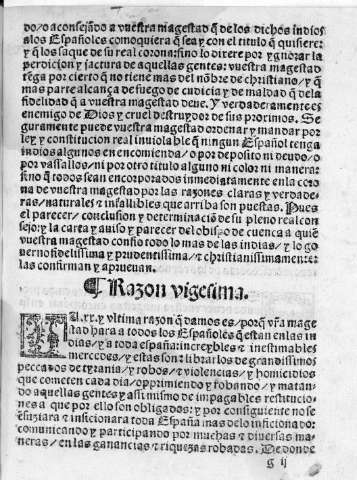 do/o aconsejãdo a vuestra magestad q̃ de los dichos indios
alos Españoles comoquiera q̃ sea y con el titulo q̃ quisierẽ
y q̃ los saque de su real corona: sino lo dixere por ygnorar la
perdicion y factura de aquellas gentes: vuestra magestad
tẽga por cierto q̃ no tiene mas del nõbre de christiano/y q̃
mas parte alcança de fuego de cudicia y de maldad q̃ dela
fidelidad q̃ a vuestra magestad deue. Y verdaderamente es
enemigo de Dios y cruel destruydor de sus proximos. Se
guramente puede vuestra magestad ordenar y mandar por
ley y constitucion real inuiolable q̃ ningun Español tenga
indios algunos en encomienda/o por deposito ni feudo/o
por vassallos/ni por otro titulo alguno ni color ni manera:
sino q̃ todos sean encorporados inmediatamente en la coro
na de vuestra magestad por las razones claras y verdade-
ras/naturales ⁊ infalibles que arriba son puestas. Pues
el parecer/conclusion y determinaciõ de su pleno real con
sejo: y la carta y auiso y parecer del obispo de cuenca a quiẽ
vuestra magestad confio todo lo mas de las indias/y lo go
uerno fidelissima y prudentissima/⁊ christianissimamente:
las confirman y aprueuan.
¶ Razon vigesima.
La .xx. y vltima razon q̃ damos es/porq̃ vr̃a mage
stad hara a todos los Españoles q̃ estan en las in
dias/y a toda españa: increybles ⁊ inestimables
mercedes/y estas son: librarlos de grandissimos
peccados de tyrania/y robos/⁊ violencias/y homicidios
que cometen cada dia/opprimiendo y robando/y matan-
do aquellas gentes y assi mismo de impagables restitucio-
nes a que por ello son obligados: y por consiguiente no se
ensuziara ⁊ inficionara toda España mas delo inficionado:
comunicando y participando por muchas ⁊ diuersas ma-
neras/en las ganancias ⁊ riquezas robadas. De donde
g ij